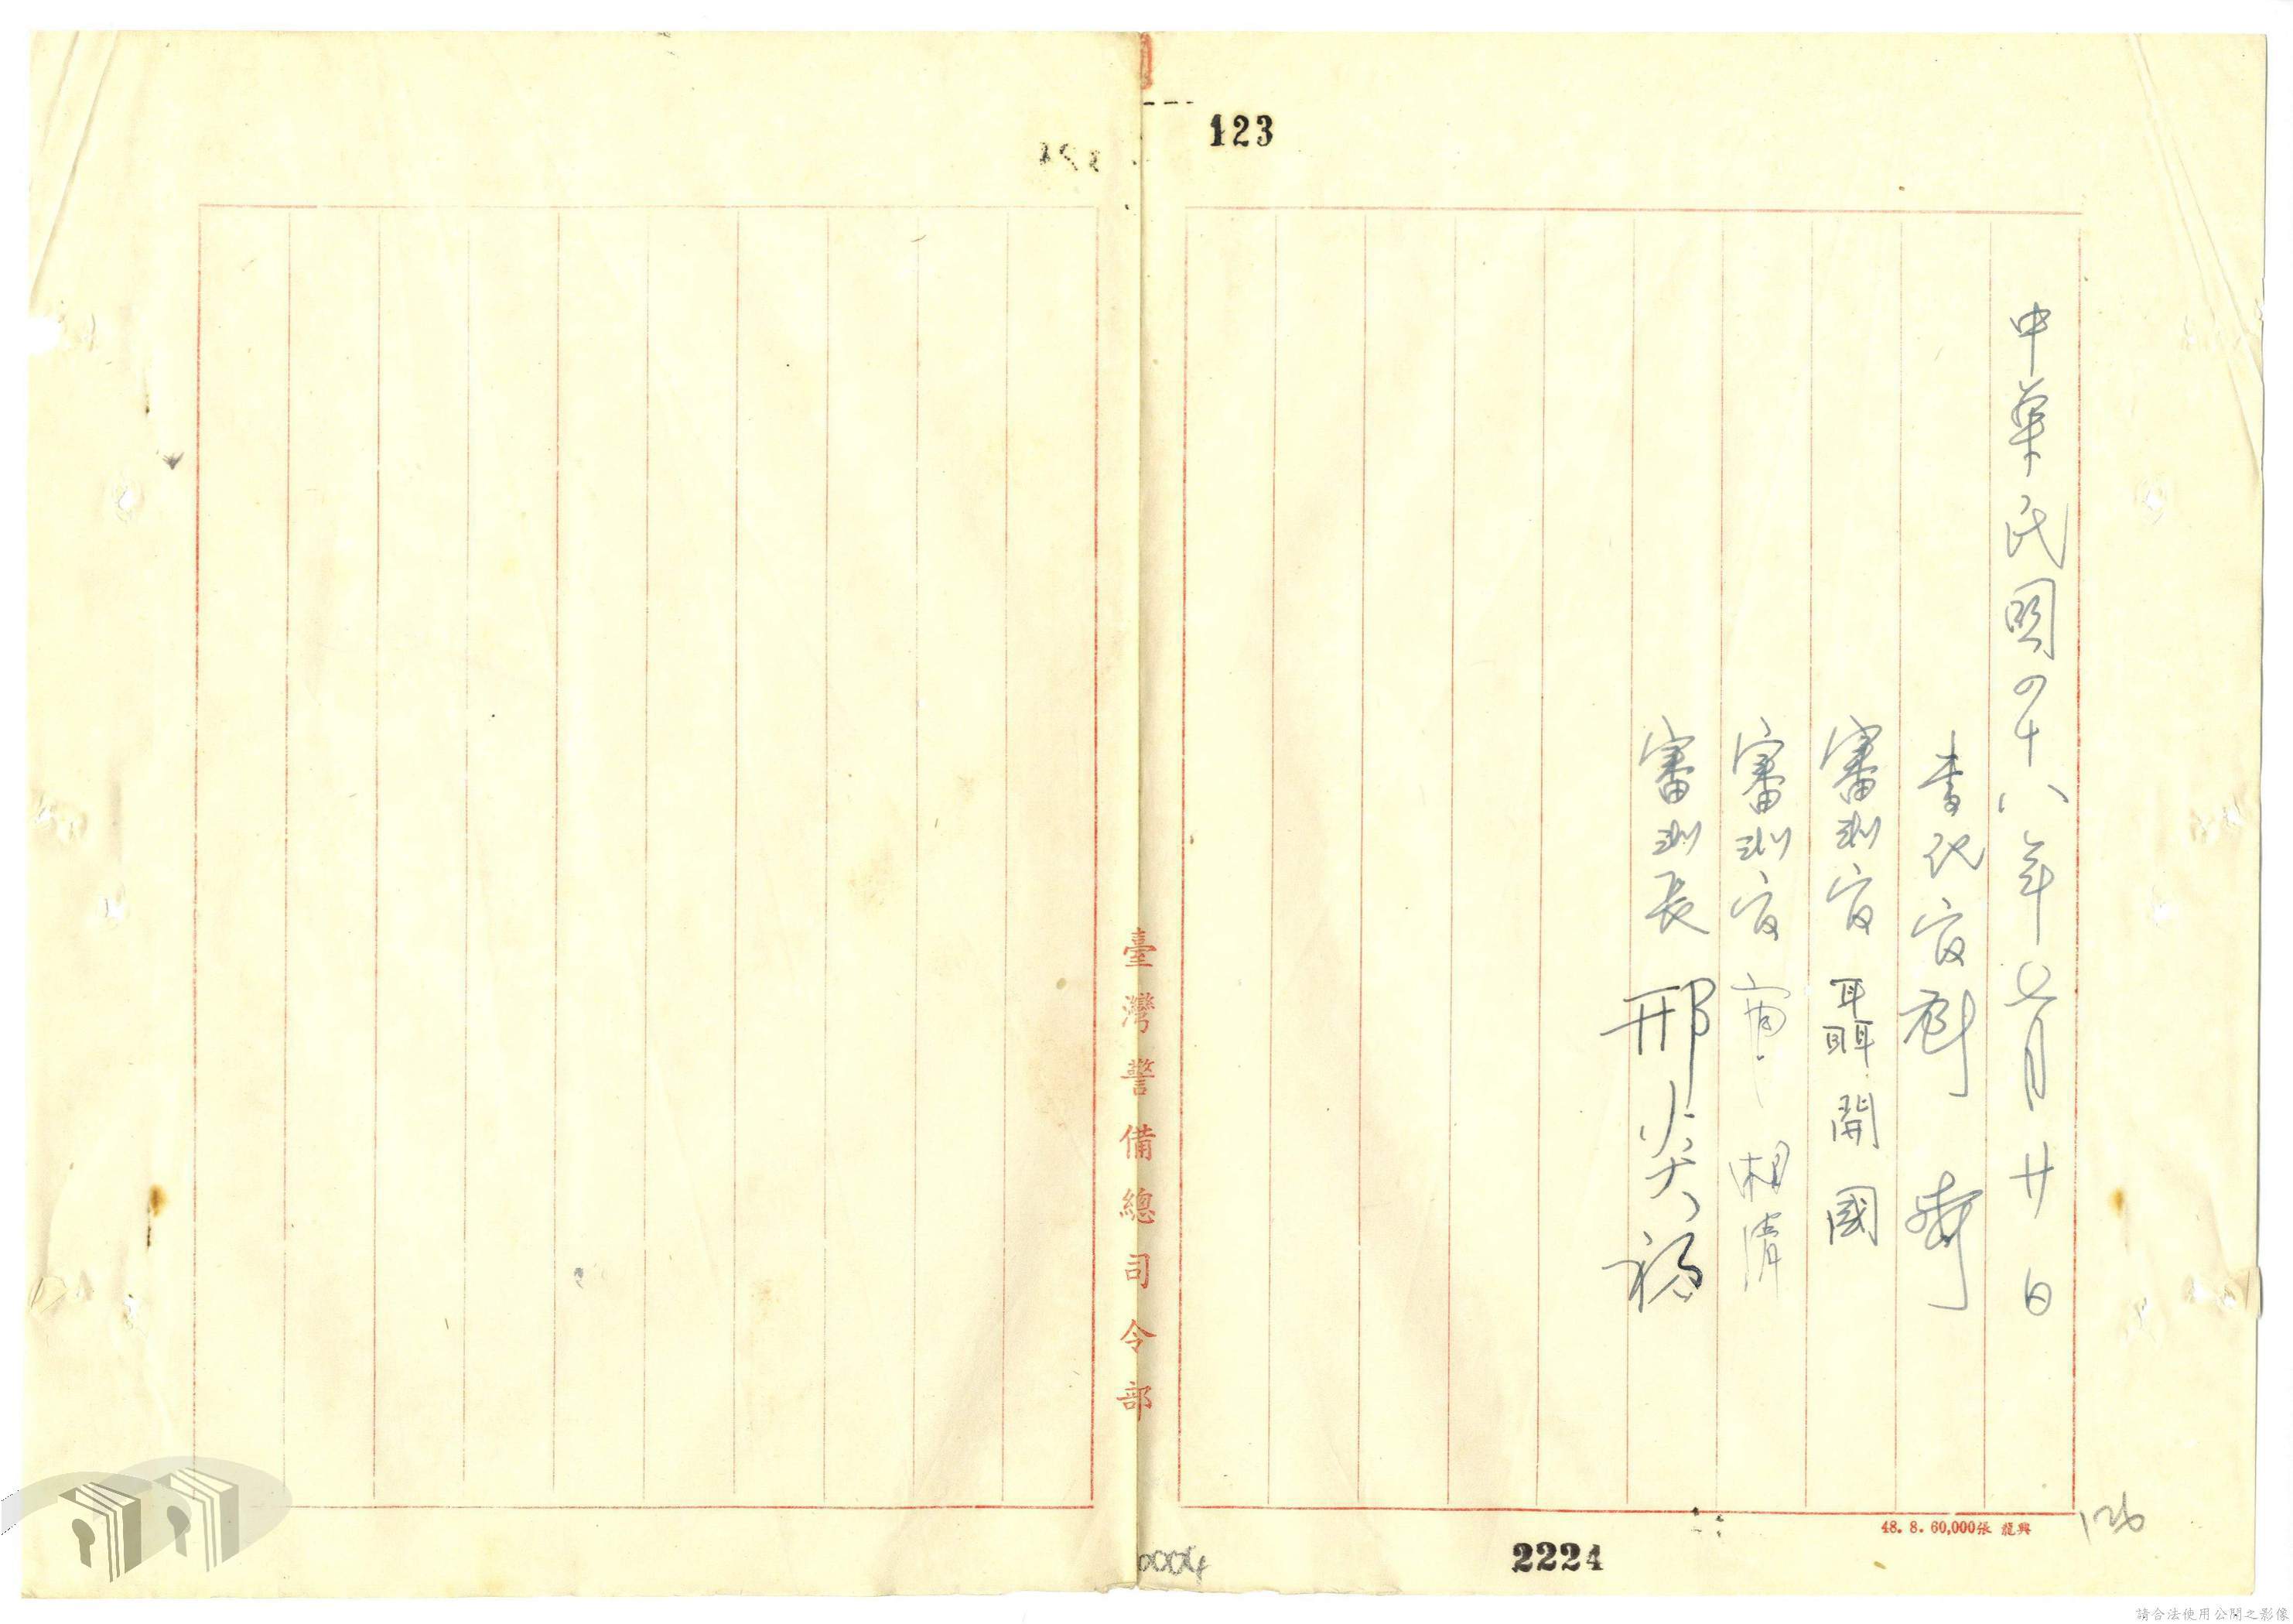 123
中華民國四十八年七月廿日
書記官
審判官 聶開國
審判官 甯湘清
審判長 邢炎初
臺灣警備總司令部
48. 8. 60,000張 龍興
126
2224
0004
請合法使用公開之影像